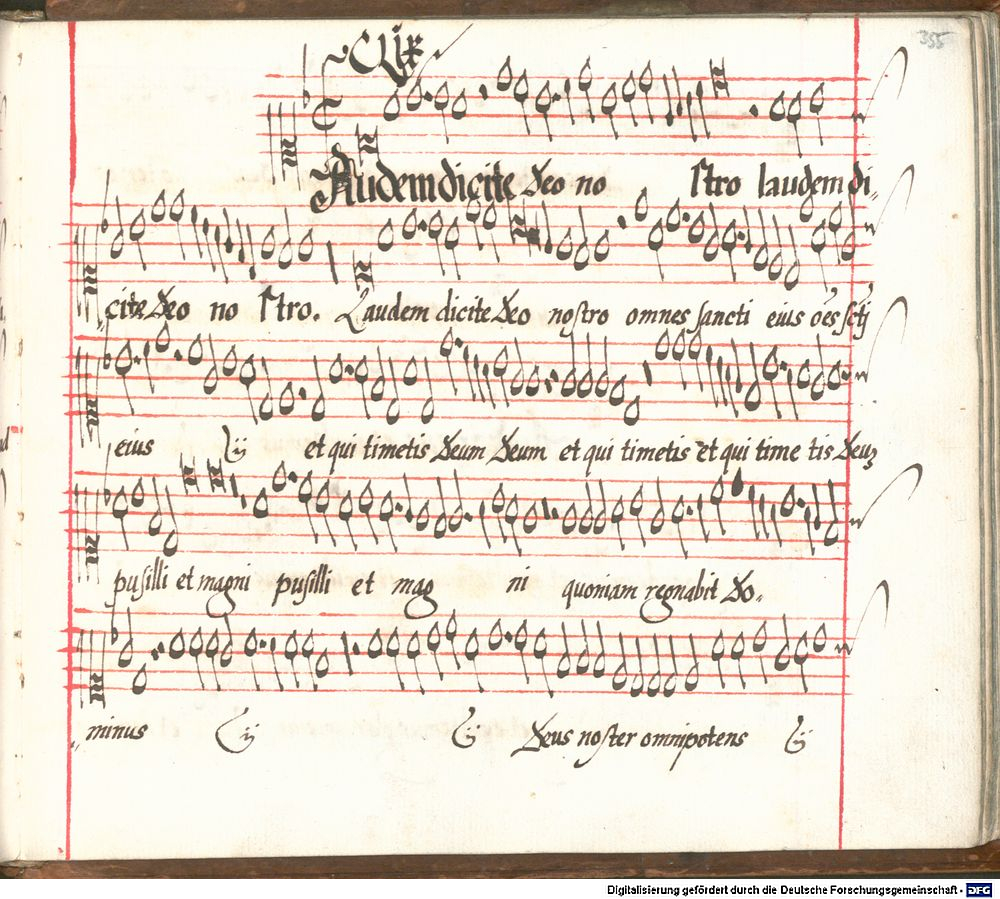 355
CLix
Laudem dicite Deo no stro laudem di„
cite Deo no stro. Laudem dicite Deo nostro omnes sancti eius oēs scti
eius ij et qui timetis Deum Deum et qui timetis et qui time tis Deuȝ
pusilli et magni pusilli et mag ni quoniam regnabit Do„
„minus ij ij Deus noster omnipotens ij
Digitalisierung gefördert durch die Deutsche Forschungsgemeinschaft - DFG